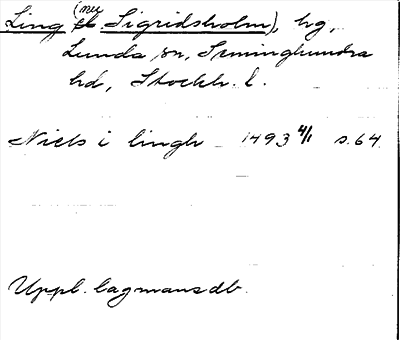 Ling (nu Sigridsholm), hg,
Lunda sn, Seminghundra
hd, Stockh. l.
Niels i lingh 1493 4/1 s. 64
Uppl. lagmansdb.